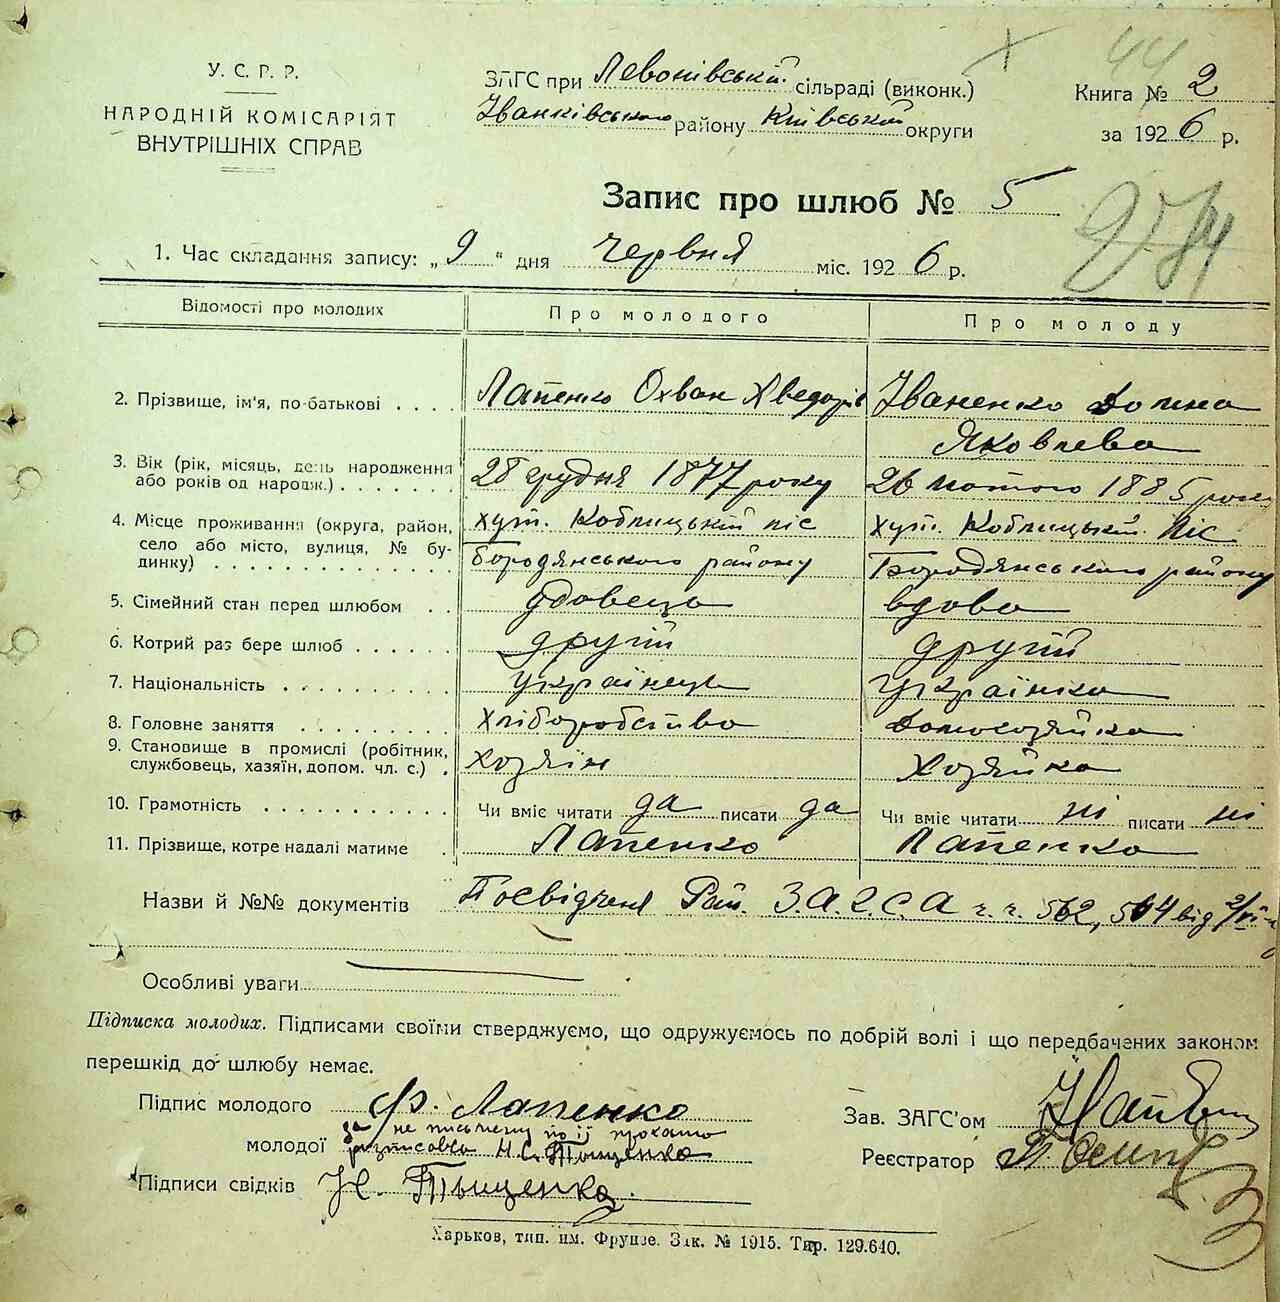 44
У. С. Р. Р.
НАРОДНІЙ КОМІСАРІЯТ
ВНУТРІШНІХ СПРАВ
ЗАГС при Левонівській сільраді (виконк.)
Іванківського району Київській округи
Книга № 2
за 1926 р.
Запис про шлюб № 5
1. Час складання запису: „9“ дня червня міс. 1926 р.
Відомості про молодих
Про молодого
Про молоду
2. Прізвище, ім'я, по-батькові . . . .
Лапенко Охван Хведорів
Іваненко Домна
Яковлева
3. Вік (рік, місяць, день народження
або років од народж.) . . . . . . .
28 грудня 1877 року
26 лютого 1885 року
4. Місце проживання (округа, район,
село або місто, вулиця, № бу-
динку) . . . . . . . . . . . . . .
хут. Коблицькій ліс
Бородянського району
хут. Коблицькій ліс
Бородянського району
5. Сімейний стан перед шлюбом . .
вдовець
вдова
6. Котрий раз бере шлюб . . . . . .
другій
другій
7. Національність . . . . . . . . . .
українець
українка
8. Головне заняття . . . . . . . . .
хліборобство
домохозяйка
9. Становище в промислі (робітник,
службовець, хазяїн, допом. чл. с.) .
хозяін
Хозяйка
10. Грамотність . . . . . . . . . . .
Чи вміє читати да писати да
Чи вміє читати ні писати ні
11. Прізвище, котре надалі матиме .
Лапенко
Лапенко
Назви й №№ документів Посвідченя Рай. З.А.Г.С.А ч.ч. 562, 564 від 2/VI
Особливі уваги
Підписка молодих. Підписами своїми стверджуємо, що одружуємось по добрій волі і що передбачених законом
перешкід до шлюбу немає.
Підпис молодого Ф. Лапенко
за не письмену по її проханю
молодої розписався Н.С. Тыщенко
Підписи свідків Н. Тыщенко.
Зав. ЗАГС'ом
Реєстратор
Харьков, тип. им. Фрунзе. Зак. № 1915. Тир. 129.640.